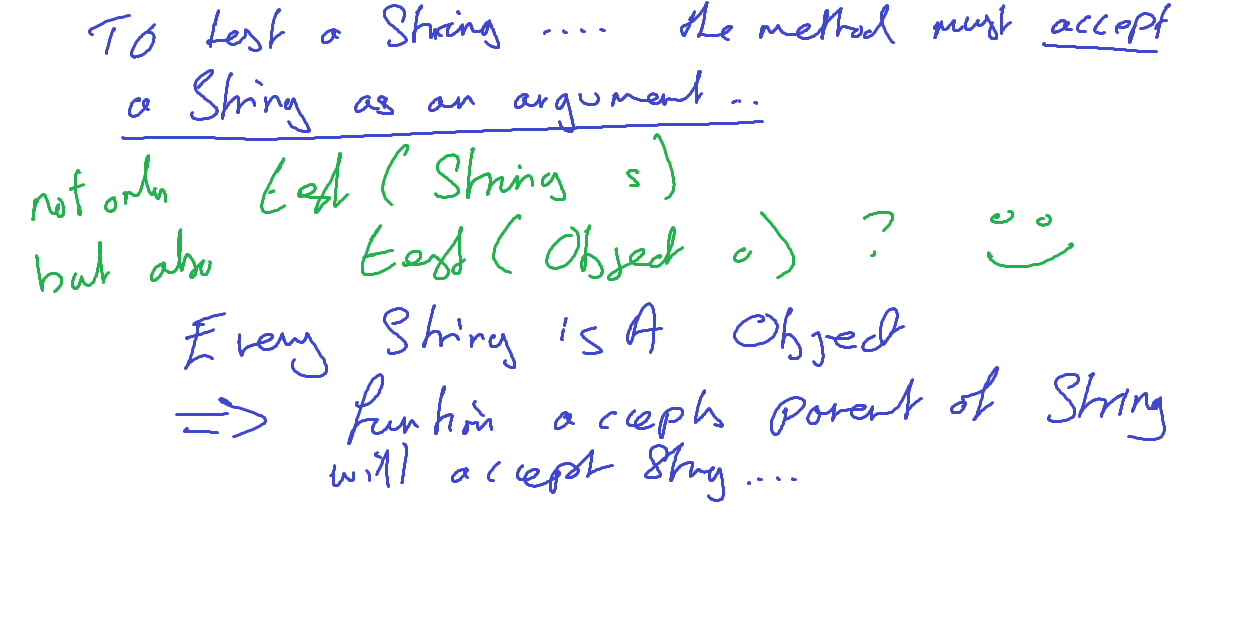 To test a String .... the method must accept
a String as an argument ..
not only test ( String s )
but also test ( Object o ) ?
Every String is A Object
=> function accepts parent of String
will accept String ....